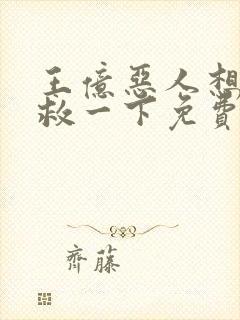 王億惡人想
救一下免費
齊藤